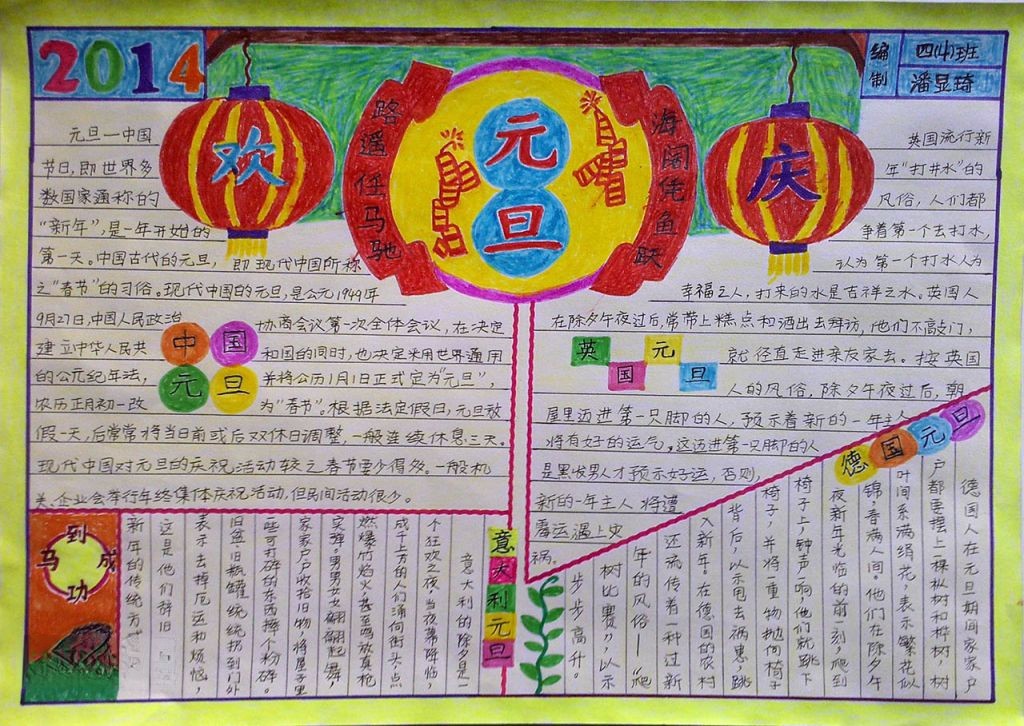 2014
编制
四(4)班
潘显琦
欢
庆
路遥任马驰
元旦
海阔凭鱼跃
元旦—中国
节日,即世界多
数国家通称的
“新年”,是一年开始的
第一天。中国古代的元旦, 即现代中国所称
之“春节”的习俗。现代中国的元旦,是公元1949年
9月27日,中国人民政治 协商会议第一次全体会议,在决定
建立中华人民共 和国的同时,也决定采用世界通用
的公元纪年法, 并将公历1月1日正式定为“元旦”,
农历正月初一改 为“春节”。根据法定假日,元旦放
假一天,后常常将当日前或后双休日调整,一般连续休息三天。
现代中国对元旦的庆祝活动较之春节要少得多。一般机
关、企业会举行年终集体庆祝活动,但民间活动很少。
中国元旦
英国流行新
年“打井水”的
风俗,人们都
争着第一个去打水,
认为第一个打水人为
幸福之人,打来的水是吉祥之水。英国人
在除夕午夜过后,常带上糕点和酒出去拜访,他们不敲门,
就径直走进亲友家去。按英国
人的风俗,除夕午夜过后,朝
屋里迈进第一只脚的人,预示着新的一年主人
将有好的运气。这迈进第一只脚的人
是黑发男人才预示好运,否则,
新的一年主人将遭
霉运遇上灾
祸。
英国元旦
德国元旦
德国人在元旦期间家家户
户都要摆上一棵枞树和桦树,树
叶间系满绢花,表示繁花似
锦,春满人间。他们在除夕午
夜新年光临的前一刻,爬到
椅子上,钟声一响他们就跳下
椅子,并将一重物抛向椅子
背后,以示甩去祸患,跳
入新年。在德国的农村
还流传着一种过新
年的风俗——爬
树比赛”,以示
步步高升。
意大利元旦
意大利的除夕是一
个狂欢之夜,当夜幕降临,
成千上万的人们涌向街头,点
燃爆竹焰火甚至鸣放真枪
实弹。男男女女翩翩起舞,
家家户户收拾旧物,将屋子里
一些可打碎的东西摔个粉碎。
旧盆旧瓶罐统统扔到门外
表示去掉厄运和烦恼,
这是他们辞旧
新年的传统方
马到成功